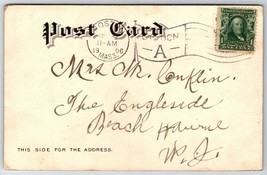 Post Card
11-AM
MASS.
A
Mrs M. Conklin.
The Engleside
Beach Haven
N. J.
THIS SIDE FOR THE ADDRESS.